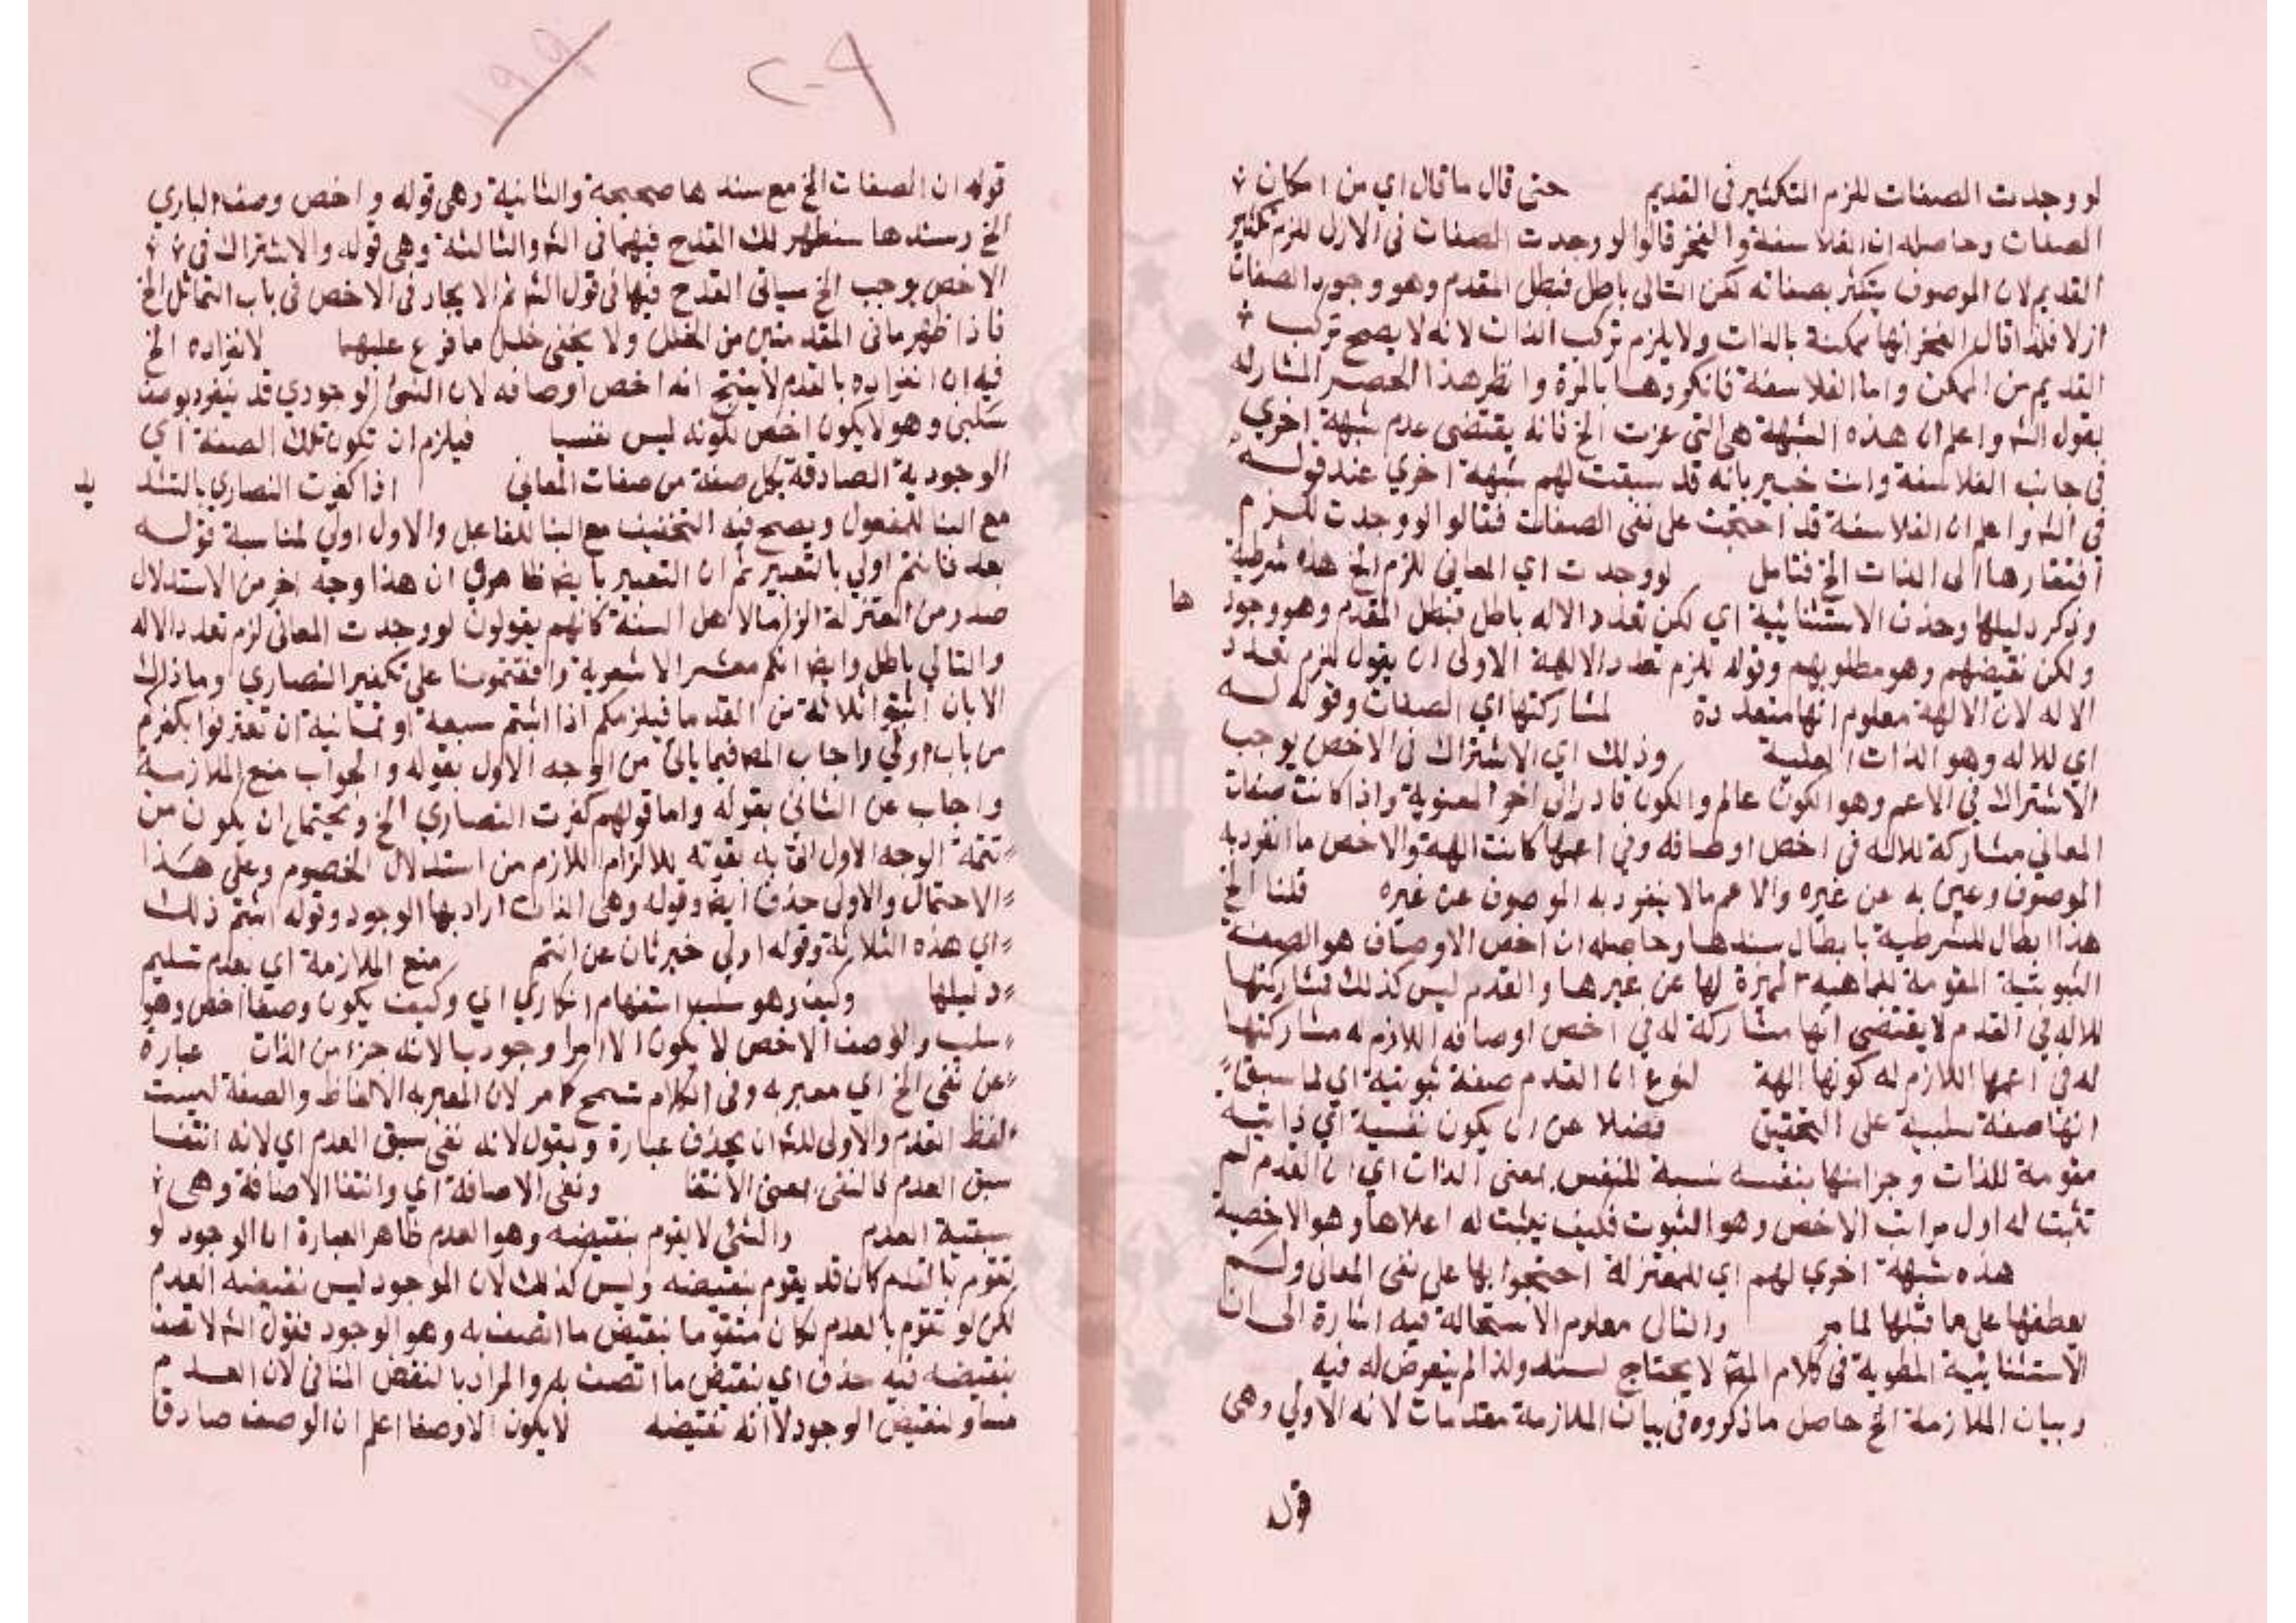 لو وجدت الصفات للزم التكثير في القديم حتى قال ما قال اي من امكان
الصفات وحاصله ان الفلاسفة والفخر قالوا لو وجدت الصفات في الازل للزم تكثير
القديم لان الموصوف يتكثر بصفاته لكن التالي باطل فبطل المقدم وهو وجود الصفات
ازلا فلذا قال الفخر انها ممكنة بالذات ولا يلزم تركب الذات لانه لا يصح تركب
القديم من الممكن واما الفلاسفة فانكروها بالمرة وانظر هذا الحصر المشار له
بقول الش واعلم ان هذه الشبهة هي التي عزت الخ فانه يقتضي عدم شبهة اخري
في جانب الفلاسفة وانت خبير بانه قد سبقت لهم شبهة اخري عند قوله
في الش واعلم ان الفلاسفة قد احتجت على نفي الصفات فقالوا لو وجدت للزم
افتقارها الى الذات الخ فتامل لو وجدت اي المعاني للزم الخ هذه شرطية
وذكر دليلها وحذف الاستثنائية اي لكن تعدد الاله باطل فبطل المقدم وهو وجودها
ولكن نقيضهم وهو مطلوبهم وقوله للزم تعدد الالهة الاولى ان يقول للزم تعدد
الاله لان الالهة معلوم انها متعددة لمشاركتها اي الصفات وقوله له
اي للاله وهو الذات العلية وذلك اي الاشتراك في الاخص يوجب
الاشتراك في الاعم وهو الكون عالم والكون قادر الى اخر المعنوية واذا كانت صفات
المعاني مشاركة للاله في اخص اوصافه وفي اعمها كانت الهة والاخص ما انفرد به
الموصوف وعين به عن غيره والاعم مالا ينفرد به الموصوف عن غيره قلنا الخ
هذا ابطال للشرطية بابطال سندها وحاصله ان اخص الاوصاف هو الصفة
الثبوتية المقومة للماهية المميزة لها عن غيرها والقدم ليس كذلك فمشاركتها
للاله في القدم لا يقتضي انها مشاركة له في اخص اوصافه اللازم له مشاركتها
له في اعمها اللازم له كونها الهة لنوع ان القدم صفة ثبوتية اي لما سبق
انها صفة سلبية على التحقيق فضلا عن ان يكون نفسية اي ذاتية
مقومة للذات وجزا منها بنفسه نسبة للنفس بمعنى الذات اي ان القدم لم
تثبت له اول مراتب الاخص وهو الثبوت فكيف يثبت له اعلاها وهو الاخصية
هذه شبهة اخري لهم اي للمعتزلة احتجوا بها على نفي المعاني ولم
يعطفها على ما قبلها لما مر والتالي معلوم الاستحالة فيه اشارة الى ان
الاستثنائية المطوية في كلام المص لا يحتاج لسند ولذا لم يتعرض له فيه
وبيان الملازمة الخ حاصل ما ذكروه في بيان الملازمة مقدمات لانه الاولي وهي
قوله
قوله ان الصفات الخ مع سندها صحيحة والثانية وهي قوله واخص وصف الباري
الخ وسندها سنظهر لك القدح فيهما في الش والثالثة وهي قوله والاشتراك في
الاخص يوجب الخ سياتي القدح فيها في قول الش ثم الايجاد في الاخص في باب التماثل الخ
فاذا ظهر ما في المقدمتين من الخلل ولا يخفى خلل ما فرع عليهما لانفراده الخ
فيه ان انفراده بالقدم لا ينتج انه اخص اوصافه لان الشئ الوجودي قد ينفرد بوصف
سلبي وهو لا يكون اخص لكونه ليس نفسيا فيلزم ان تكون تلك الصفة اي
الوجودية الصادقة بكل صفة من صفات المعاني اذا كفرت النصاري بالتشديد
مع البنا للمفعول ويصح فيه التخفيف مع البنا للفاعل والاول اولي لمناسبة قوله
بعد فانتم اولي بالتعبير ثم ان التعبير بايضا ظاهر في ان هذا وجه اخر من الاستدلال
صدر من المعتزلة الزاما لاهل السنة كانهم يقولون لو وجدت المعاني لزم تعدد الاله
والتالي باطل وايضا انكم معشر الاشعرية وافقتمونا على تكفير النصاري وما ذلك
الا بان اثبتوا ثلاثة من القدما فيلزمكم اذا اثبتم سبعة او ثمانية ان تعترفوا بكفركم
من باب اولي واجاب المص فيما ياتي من الوجه الاول بقوله والجواب منع الملازمة
واجاب عن الثاني بقوله واما قولهم كفرت النصاري الخ ويحتمل ان يكون من
تتمة الوجه الاول اتى به تقوية للالزام اللازم من استدلال الخصوم وعلى هذا
الاحتمال والاولى حذف ايضا وقوله وهي الذات اراد بها الوجود وقوله انتم ذلك
اي هذه الثلاثة وقوله اولي خبر ثان عن انتم منع الملازمة اي بعدم تسليم
دليلها وكيف وهو سلب استفهام انكاري اي وكيف يكون وصفا اخص وهو
سلب والوصف الاخص لا يكون الا امرا وجوديا لانه جزا من الذات عبارة
عن نفي الخ اي معبر به وفي الكلام تسمح كما مر لان المعبر به الالفاظ والصفة ليست
لفظ القدم والاولى للش ان يحذف عبارة ويقول لانه نفي سبق العدم اي لانه انتفا
سبق العدم فالنفي بمعنى الانتفا ونفي الاضافة اي وانتفا الاضافة وهي
سبقية العدم والشئ لا يقوم بنقيضه وهو العدم ظاهر العبارة ان الوجود لو
تقوم بالقدم كان قد يقوم بنقيضه وليس كذلك لان الموجود ليس نقيضه العدم
لكن لو تقوم بالعدم لكان متقوما بنقيض ما اتصف به وهو الوجود فقول الش لا تصف
بنقيضه فيه حذف اي بنقيض ما اتصف به والمراد بالنقيض المنافي لان العدم
مساو لنقيض الوجود لا انه نقيضه لا يكون الا وصفا اعلم ان الوصف صادق